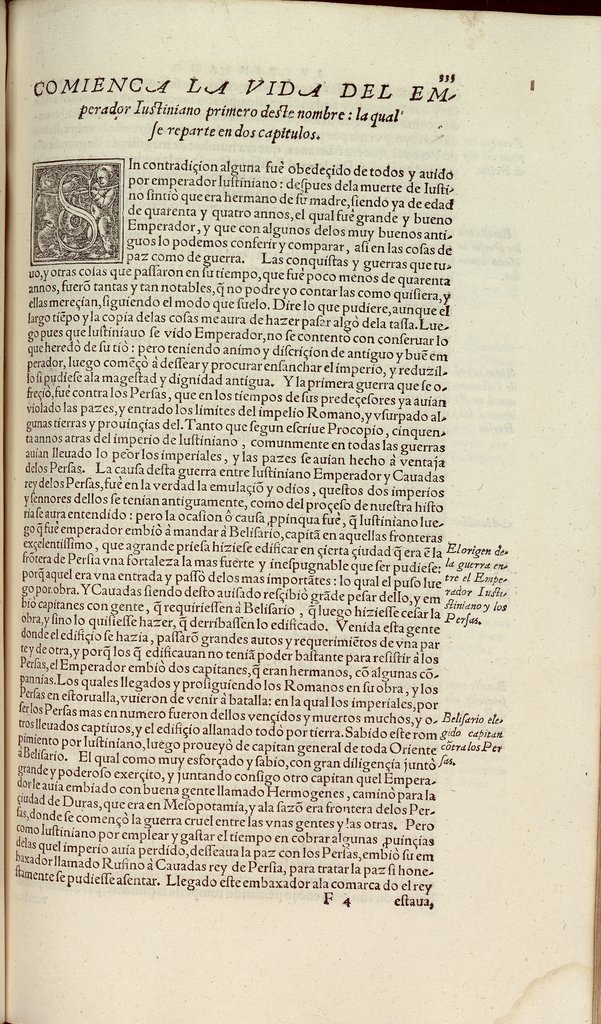 335
COMIENCA LA VIDA DEL EM-
perador Iustiniano primero deste nombre: la qual
se reparte en dos capitulos.
SIn contradiçion alguna fue obedeçido de todos y auido
por emperador Iustiniano: despues dela muerte de Iusti-
no sintiò que era hermano de su madre, siendo ya de edad
de quarenta y quatro annos, el qual fué grande y bueno
Emperador, y que con algunos delos muy buenos anti-
guos lo podemos conferir y comparar, asi en las cosas de
paz como de guerra. Las conquistas y guerras que tu-
uo, y otras cosas que passaron en su tiempo, que fué poco menos de quarenta
annos, fuerō tantas y tan notables, q̃ no podre yo contar las como quisiera, y
ellas mereçian, siguiendo el modo que suelo. Dire lo que pudiere, aunque el
largo tiēpo y la copia delas cosas me aura de hazer pasar algo dela tassa. Lue-
go pues que Iustiniauo se vido Emperador, no se contentò con conseruar lo
que heredò de su tiò: pero teniendo animo y discriçion de antiguo y buē em
perador, luego comēçò à dessear y procurar ensanchar el imperio, y reduzil-
lo si pudiese ala magestad y dignidad antigua. Y la primera guerra que se o-
freçio, fue contra los Persas, que en los tiempos de sus predeçesores ya auian
violado las pazes, y entrado los limites del impelio Romano, y vsurpado al-
gunas tierras y prouinçias del. Tanto que segun escriue Procopio, cinquen-
ta annos atras del imperio de Iustiniano, comunmente en todas las guerras
auian lleuado lo peor los imperiales, y las pazes se auian hecho à ventaja
delos Persas. La causa desta guerra entre Iustiniano Emperador y Cauadas
rey delos Persas, fue en la verdad la emulaçiō y odios, questos dos imperios
y sennores dellos se tenian antiguamente, como del proçeso de nuestra histo
ria se aura entendido: pero la ocasion ô causa ꝓpinqua fuè, q̃ Iustiniano lue-
go q̃ fuè emperador embiò à mandar à Belisario, capitā en aquellas fronteras
exçelentissimo, que agrande priesa hiziese edificar en çierta çiudad q̃ era ē la
frōtera de Persia vna fortaleza la mas fuerte y inespugnable que ser pudiese:
porq̃ aquel era vna entrada y passo delos mas importātes: lo qual el puso lue
go por obra. Y Cauadas siendo desto auisado resçibiò grāde pesar dello, y em
biò capitanes con gente, q̃ requiriessen à Belisario, q̃ luego hiziesse cesar la
obra, y sino lo quisiesse hazer, q̃ derribassen lo edificado. Venida esta gente
donde el edifiçio se hazia, passarō grandes autos y requerimiētos de vna par
te y de otra, y porq̃ los q̃ edificauan no teniā poder bastante para resistir à los
Persas, el Emperador embiò dos capitanes, q̃ eran hermanos, cō algunas cō-
pannias. Los quales llegados y prosiguiendo los Romanos en su obra, y los
Persas en estorualla, vuieron de venir à batalla: en la qual los imperiales, por
ser los Persas mas en numero fueron dellos vençidos y muertos muchos, y o-
tros lleuados captiuos, y el edifiçio allanado todo por tierra. Sabido este rom
pimiento por Iustiniano, luego proueyò de capitan general de toda Oriente
à Belisario. El qual como muy esforçado y sabio, con gran diligençia juntò
grande y poderoso exerçito, y juntando consigo otro capitan quel Empera-
dor le auia embiado con buena gente llamado Hermogenes, caminò para la
çiudad de Duras, que era en Mesopotamia, y ala sazō era frontera delos Per-
sas, donde se començò la guerra cruel entre las vnas gentes y las otras. Pero
como Iustiniano por emplear y gastar el tiempo en cobrar algunas ꝓuinçias
delas quel imperio auia perdido, desseaua la paz con los Persas, embiò su em
baxador llamado Rufino à Cauadas rey de Persia, para tratar la paz si hone-
stamente se pudiesse asentar. Llegado este embaxador ala comarca do el rey
F 4 estaua,
El origen de-
la guerra en-
tre el Empe-
rador Iusti-
stiniano y los
Persas.
Belisario ele-
gido capitan
cōtra los Per
sas.